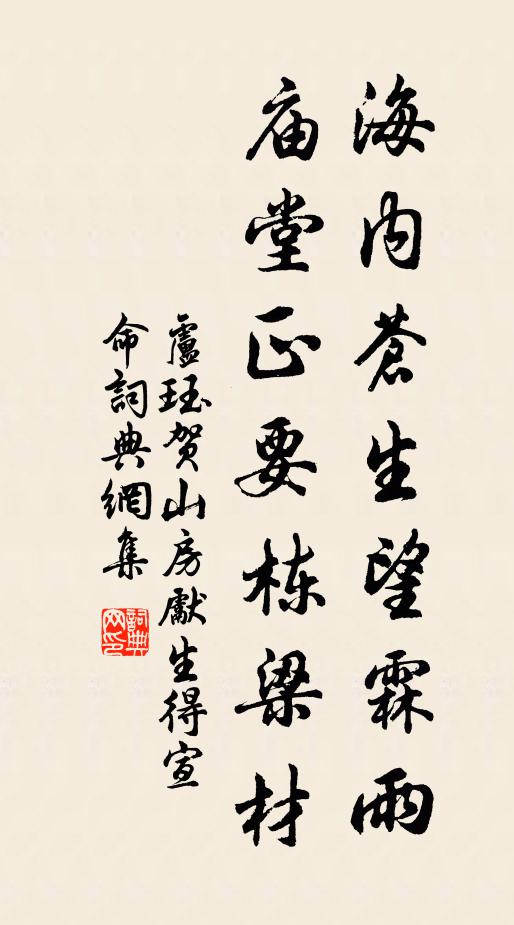 海内蒼生望霖雨
庙堂正要栋梁材
盧珏贺山房獻生得宣
命詞典網集
詞典
网印